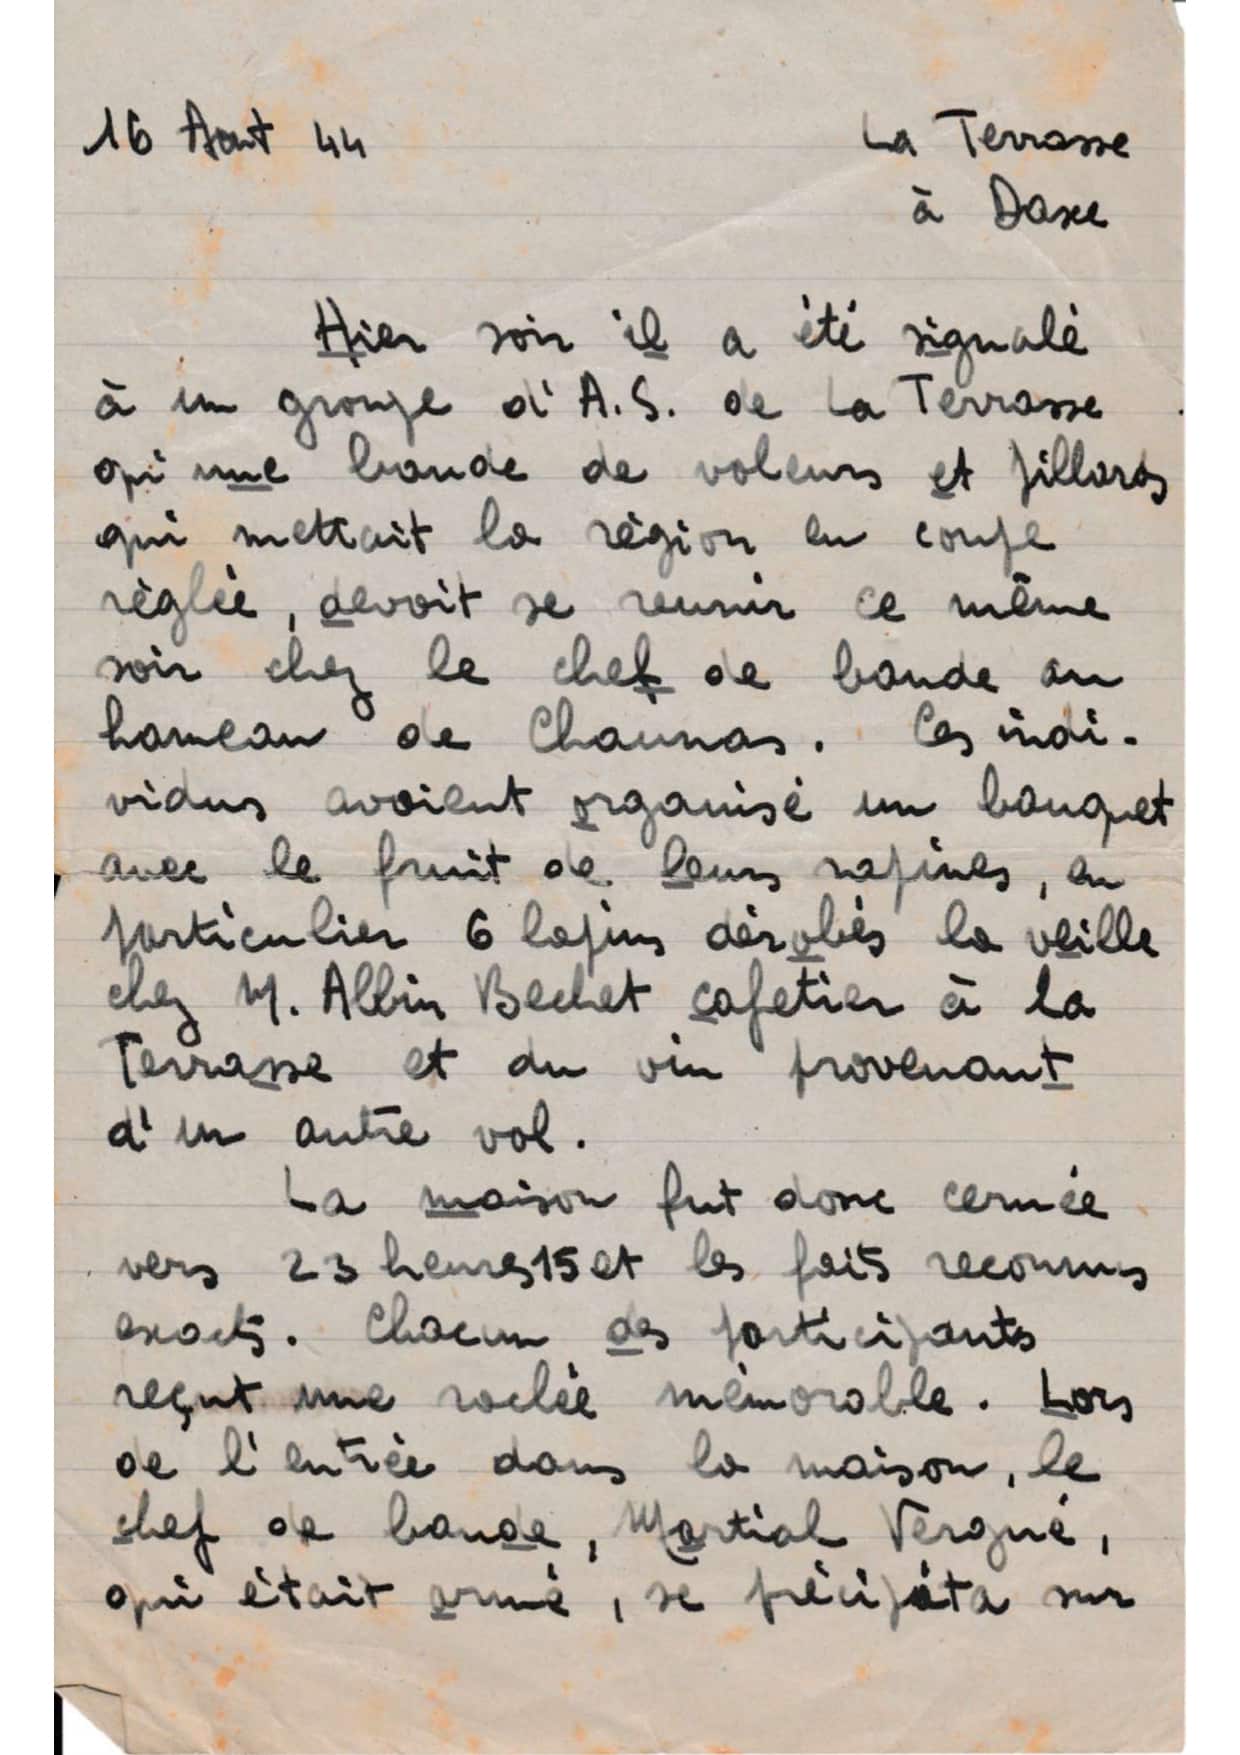 16 Aout 44
La Terrasse
à Daxe
Hier soir il a été signalé
à un groupe d'A.S. de La Terrasse
qu'une bande de voleurs et pillards
qui mettait la région en coupe
règlée, devait se reunir ce même
soir chez le chef de bande au
hameau de Chaunas. Ces indi-
vidus avaient organisé un banquet
avec le fruit de leurs rapines, en
particulier 6 lapins dérobés la veille
chez M. Albin Bechet cafetier à la
Terrasse et du vin provenant
d'un autre vol.
La maison fut donc cernée
vers 23 heures 15 et les faits reconnus
exacts. Chacun des participants
reçut une raclée mémorable. Lors
de l'entrée dans la maison, le
chef de bande, Martial Vergné,
qui était armé, se précipita sur